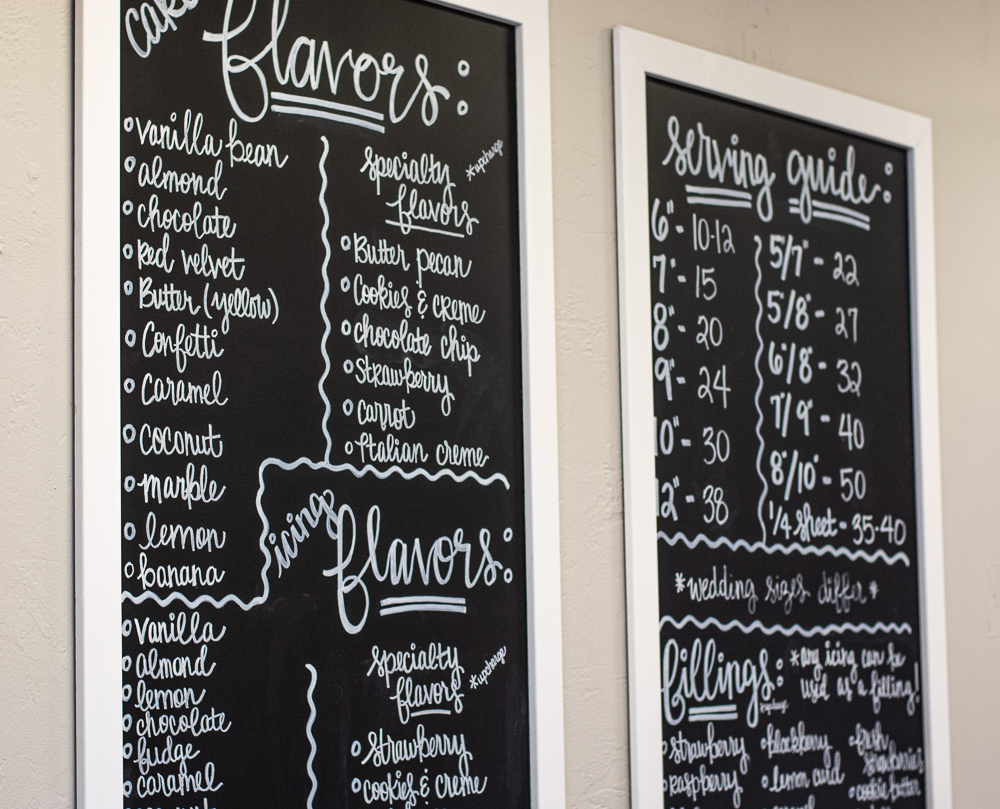 cake
flavors:
vanilla bean
almond
chocolate
Red velvet
Butter (yellow)
Confetti
Caramel
Coconut
marble
lemon
banana
specialty
flavors
*upcharge
Butter pecan
Cookies & creme
chocolate chip
Strawberry
carrot
Italian creme
icing
flavors:
vanilla
almond
lemon
chocolate
fudge
caramel
specialty
flavors
*upcharge
Strawberry
cookies & creme
serving guide:
6" - 10-12
7" - 15
8" - 20
9" - 24
10" - 30
12" - 38
5/7" - 22
5/8" - 27
6"/8" - 32
7"/9" - 40
8"/10" - 50
1/4 sheet - 35-40
*wedding sizes differ*
fillings:
*upcharge
*any icing can be
used as a filling!
strawberry
raspberry
blackberry
lemon curd
fresh
strawberries
cookie butter